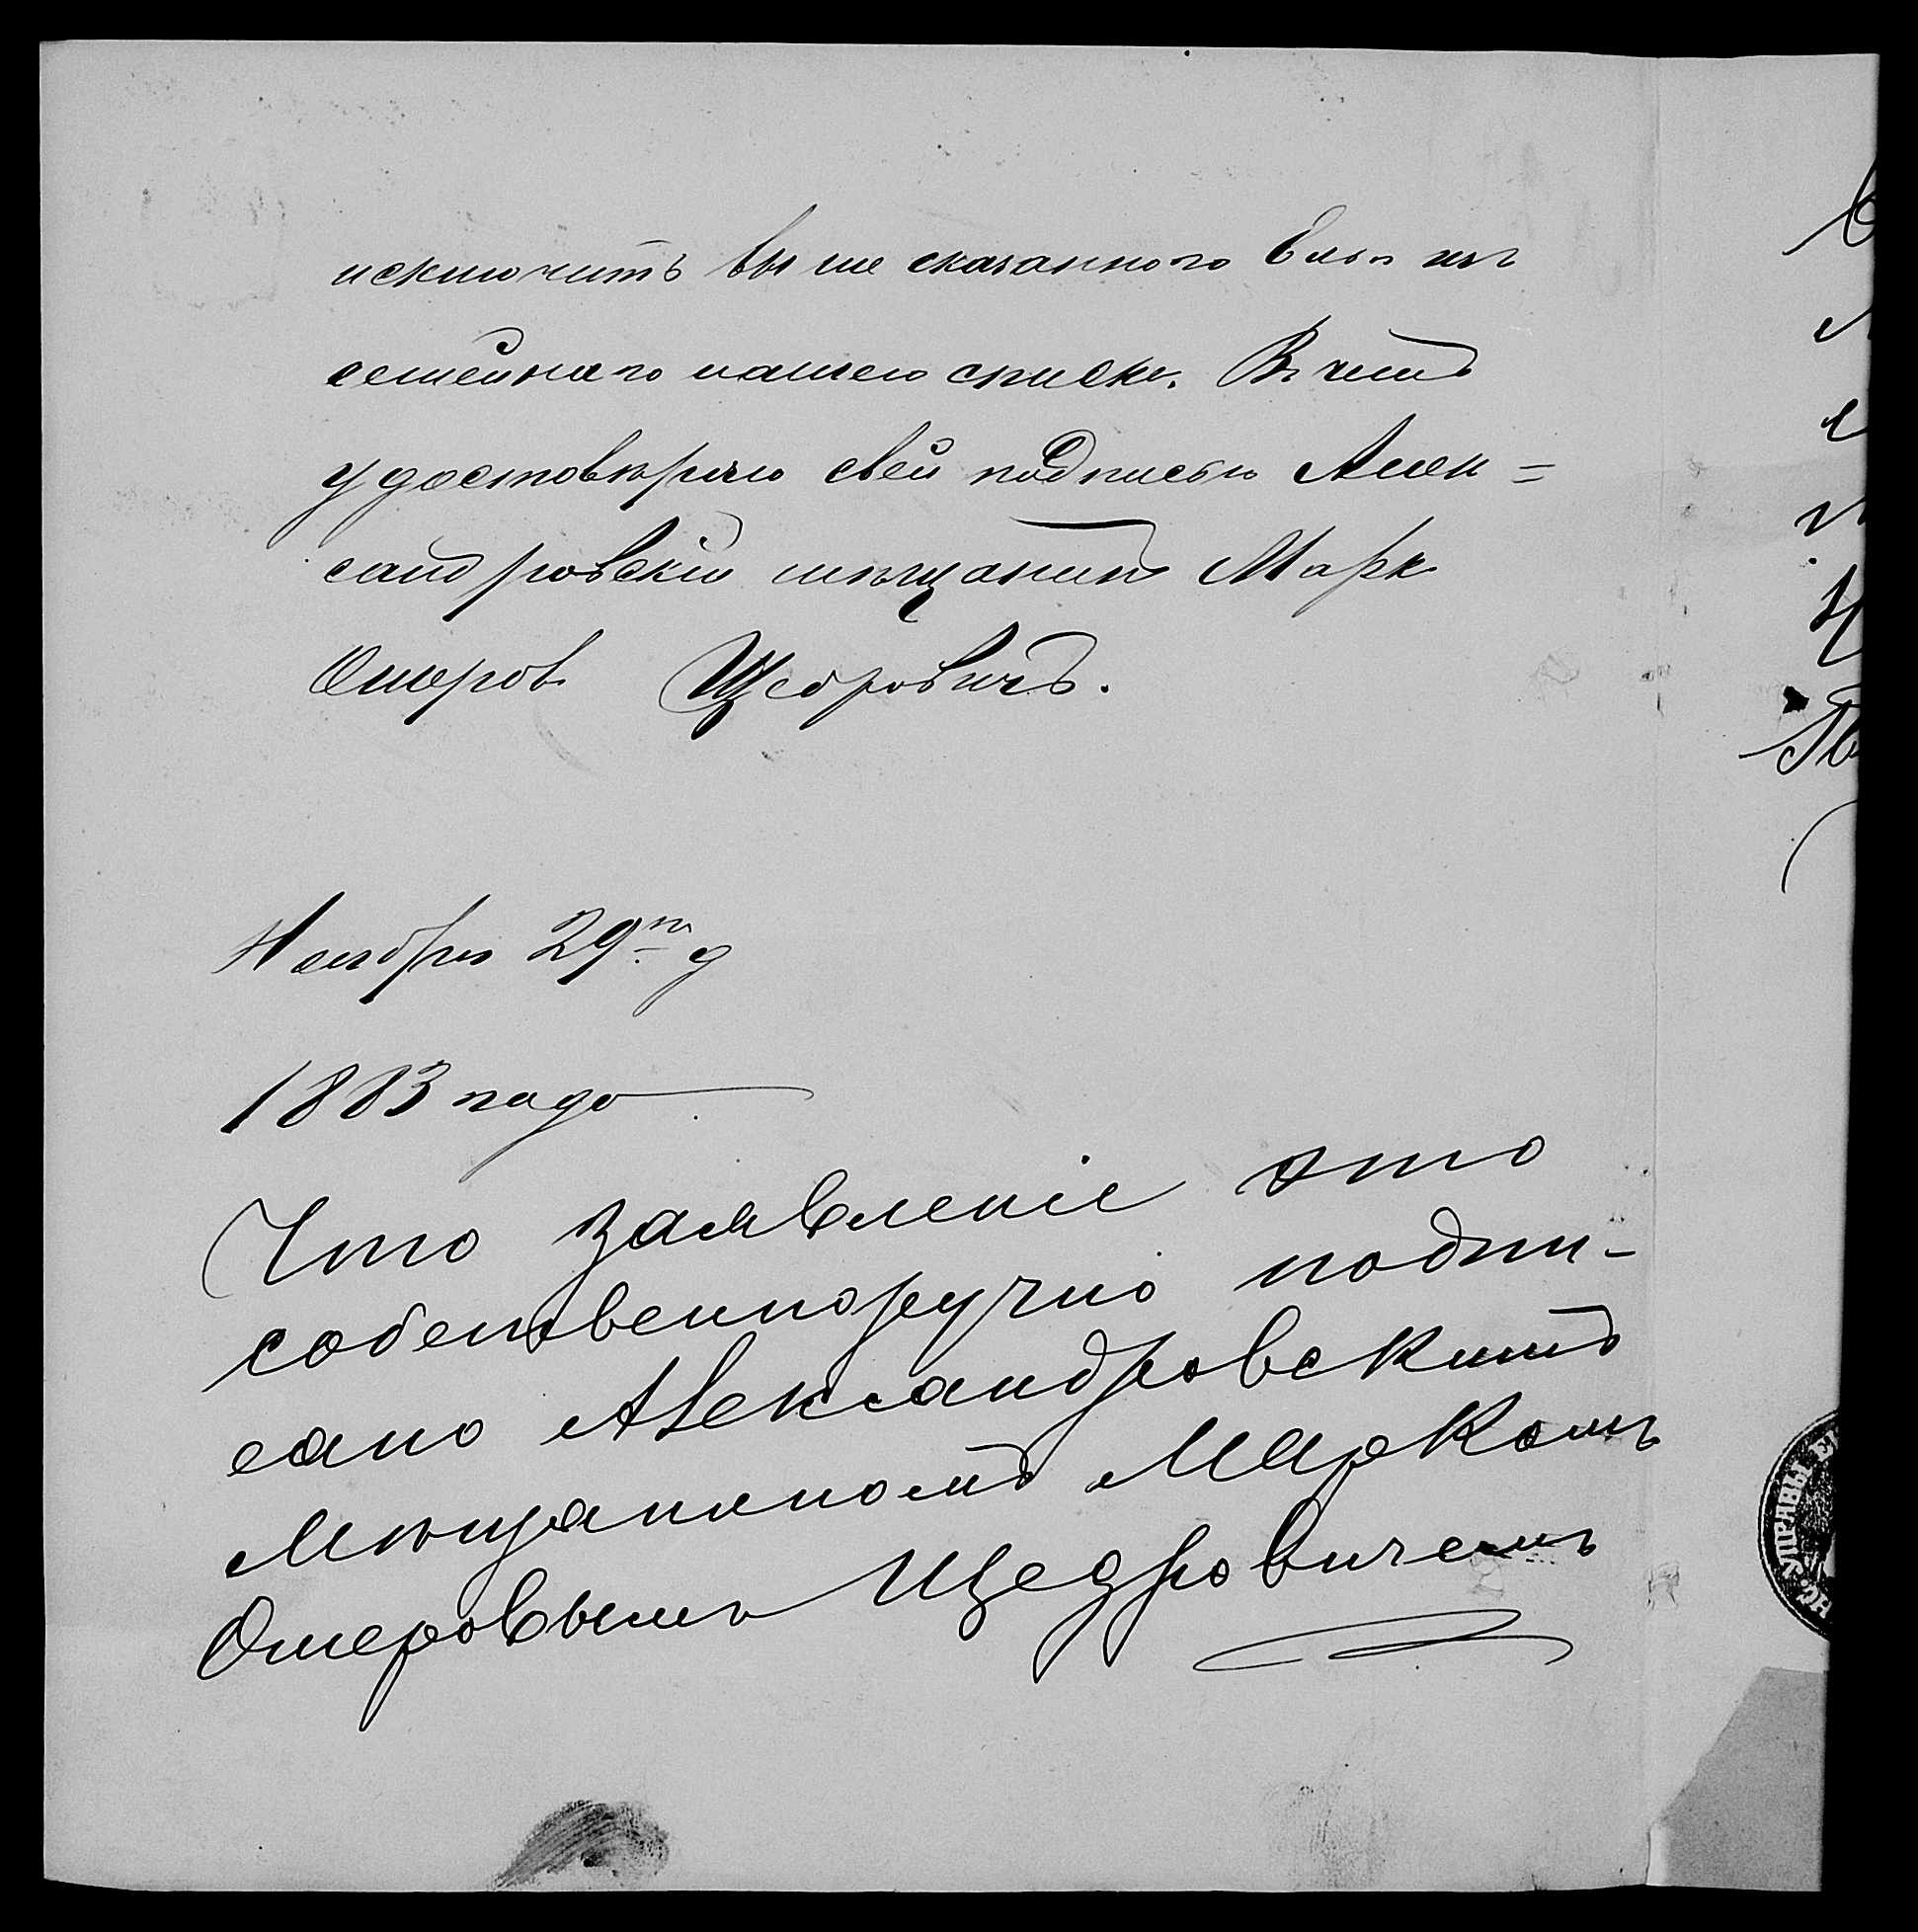 исключить выше сказанного Ельо изъ
семейнаго нашего списка. Въ чемъ
удостовѣряю свей подписью Алек=
сандровскій мѣщанинъ Маркъ
Ошеровъ Щедровичъ.
Ноября 29го д
1883 года
Что заявленіе это
собственноручно подпи-
сано Александровскимъ
Мѣщаниномъ Маркомъ
Ошеровымъ Щедровичемъ
УПРАВЫ